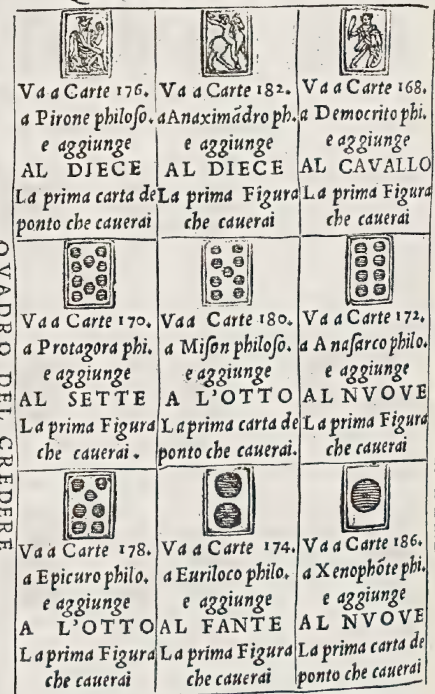 Va a Carte 176.
a Pirone philoſo.
e aggiunge
AL DIECE
La prima carta de
ponto che cauerai
Va a Carte 182.
a Anaximãdro ph.
e aggiunge
AL DIECE
La prima Figura
che cauerai
Va a Carte 168.
a Democrito phi.
e aggiunge
AL CAVALLO
La prima Figura
che cauerai
Va a Carte 170.
a Protagora phi.
e aggiunge
AL SETTE
La prima Figura
che cauerai.
Va a Carte 180.
a Miſon philoſo.
e aggiunge
A L'OTTO
La prima carta de
ponto che cauerai.
Va a Carte 172.
a Anaſarco philo.
e aggiunge
AL NVOVE
La prima Figura
che cauerai
Va a Carte 178.
a Epicuro philo.
e aggiunge
A L'OTTO
La prima Figura
che cauerai
Va a Carte 174.
a Euriloco philo.
e aggiunge
AL FANTE
La prima Figura
che cauerai
Va a Carte 186.
a Xenophõte phi.
e aggiunge
AL NVOVE
La prima carta de
ponto che cauerai
QVADRO DEL CREDERE